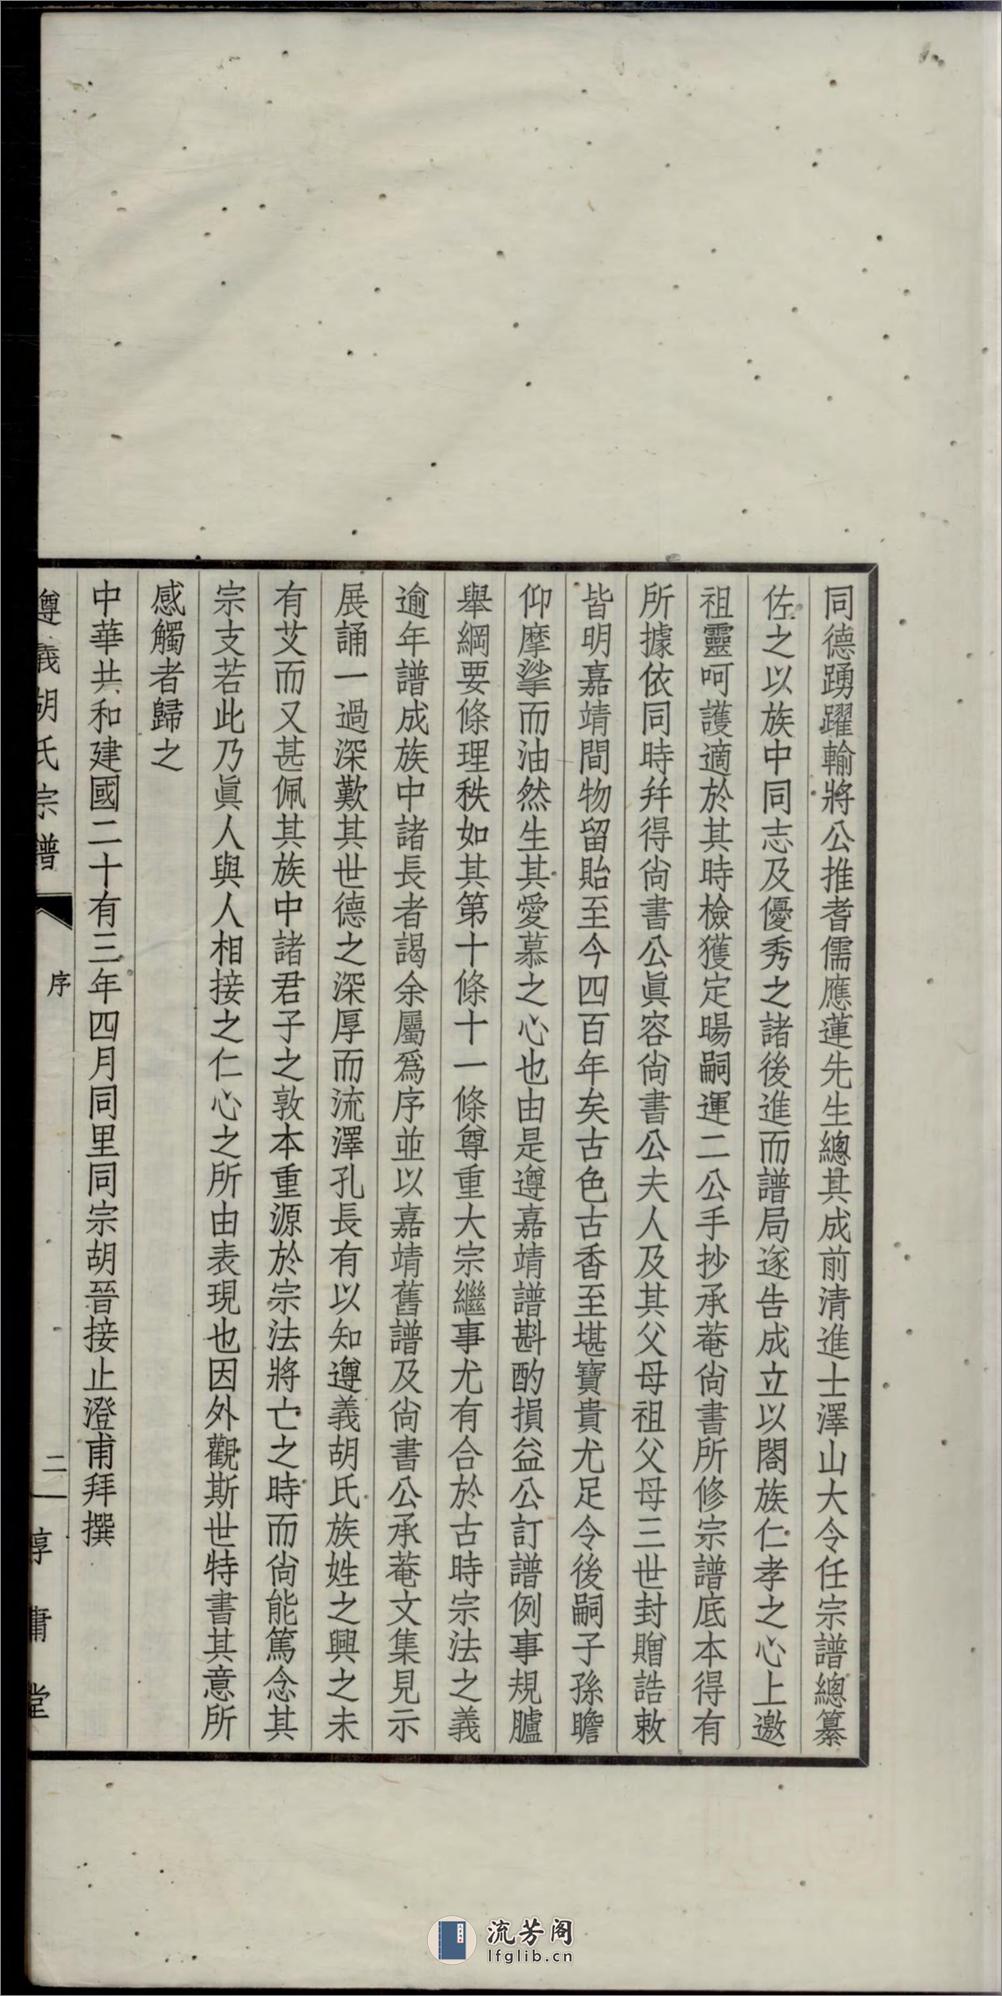 同德踴躍輸將公推耆儒應蓮先生總其成前清進士澤山大令任宗譜總纂
佐之以族中同志及優秀之諸後進而譜局遂告成立以閤族仁孝之心上邀
祖靈呵護適於其時檢獲定暘嗣運二公手抄承菴尚書所修宗譜底本得有
所據依同時幷得尚書公眞容尚書公夫人及其父母祖父母三世封贈誥敕
皆明嘉靖間物留貽至今四百年矣古色古香至堪寶貴尤足令後嗣子孫瞻
仰摩挲而油然生其愛慕之心也由是遵嘉靖譜斟酌損益公訂譜例事規臚
舉綱要條理秩如其第十條十一條尊重大宗繼事尤有合於古時宗法之義
逾年譜成族中諸長者謁余屬爲序並以嘉靖舊譜及尚書公承菴文集見示
展誦一過深歎其世德之深厚而流澤孔長有以知遵義胡氏族姓之興之未
有艾而又甚佩其族中諸君子之敦本重源於宗法將亡之時而尚能篤念其
宗支若此乃眞人與人相接之仁心之所由表現也因外觀斯世特書其意所
感觸者歸之
中華共和建國二十有三年四月同里同宗胡晉接止澄甫拜撰
遵義胡氏宗譜
序
二
惇庸堂
流芳阁
lfglib.cn